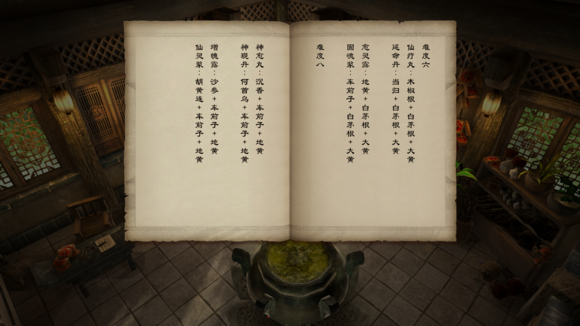 难度六
仙疗丸：木椒根+白茅根+大黄
延命丹：当归+白茅根+大黄
愈灵露：地黄+白茅根+大黄
固魂浆：车前子+白茅根+大黄
难度八
神愈丸：沉香+车前子+地黄
神硕丹：何首乌+车前子+地黄
增魄露：沙参+车前子+地黄
仙灵浆：胡黄连+车前子+地黄